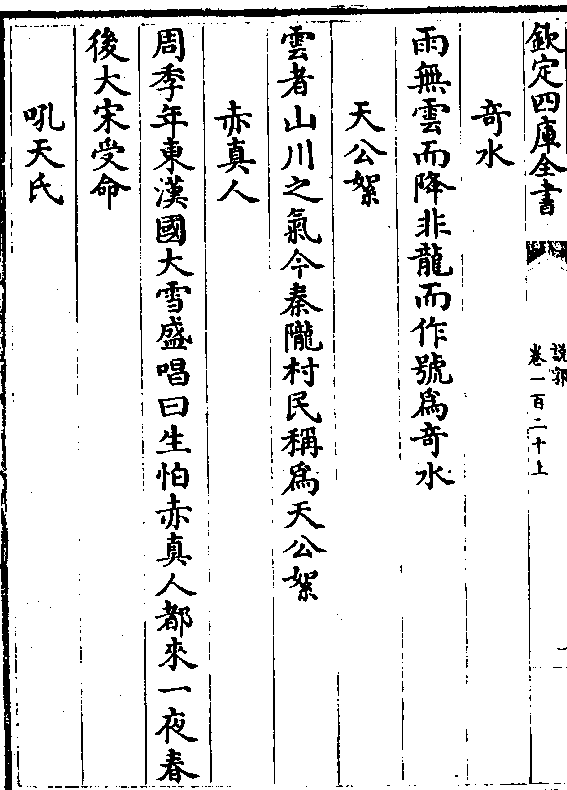 欽定四庫全書
說郛
卷一百二十上
奇水
雨無雲而降非龍而作號為奇水
天公絮
雲者山川之氣今秦隴村民稱為天公絮
赤真人
周季年東漢國大雪盛唱曰生怕赤真人都來一夜春
後大宋受命
吼天氏